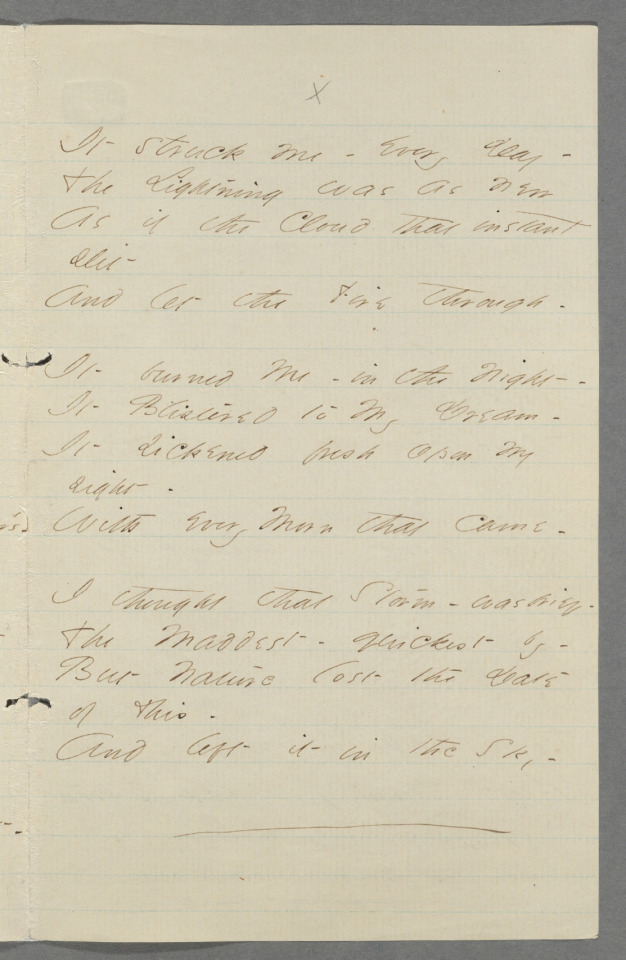 x
It struck me - Every Day -
The Lightning was as new
As if the Cloud that instant
slit -
And let the Fire through -
It burned Me - in the Night -
It Blistered to My Dream -
It sickened fresh opon my
sight -
With every Morn that came -
I thought that Storm - was brief -
The Maddest - quickest by -
But Nature lost the Date
of this -
And left it in the Sky -